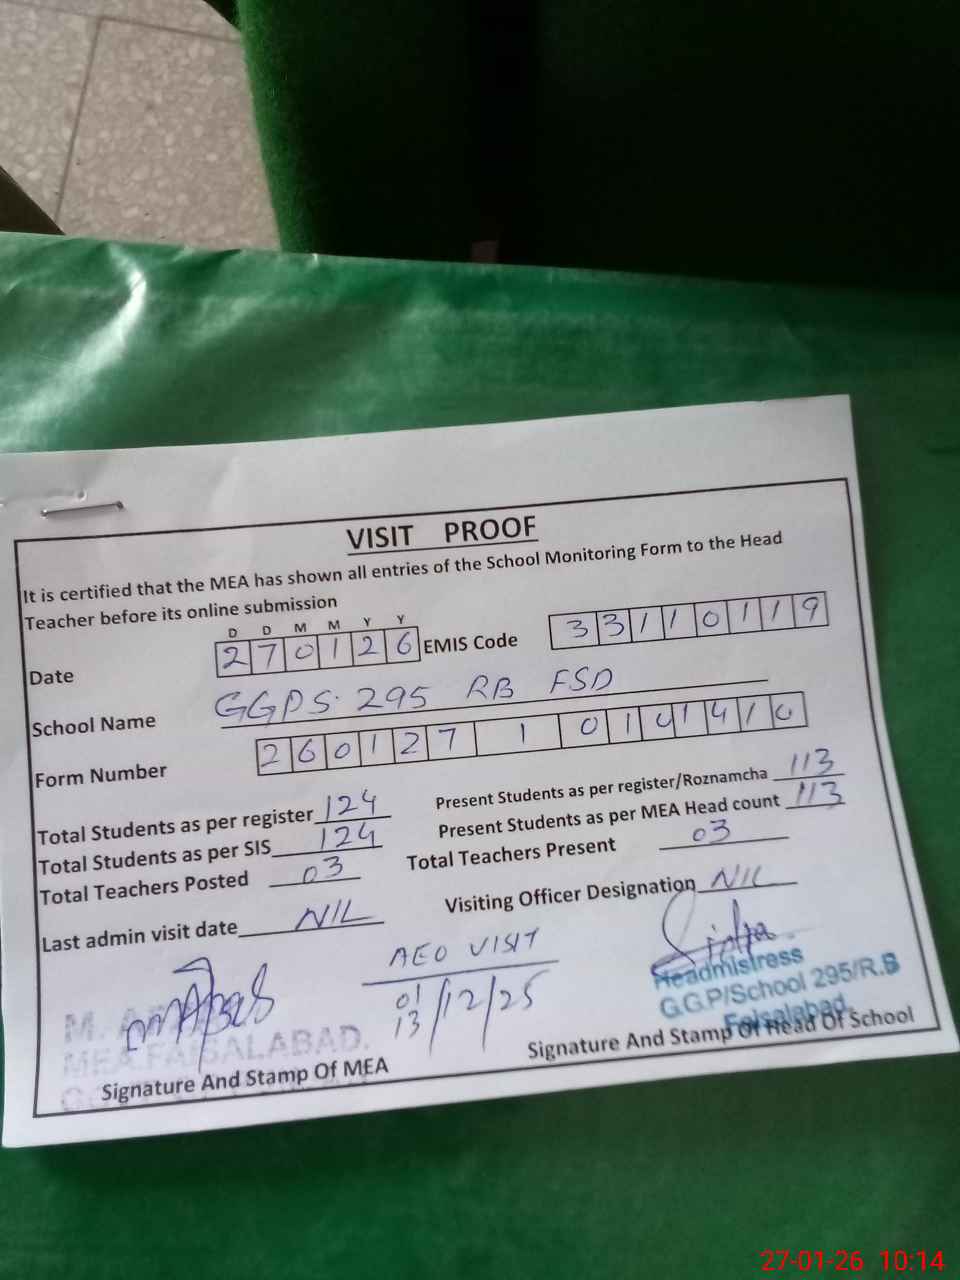 VISIT PROOF
It is certified that the MEA has shown all entries of the School Monitoring Form to the Head
Teacher before its online submission
D D M M Y Y
Date 270126 EMIS Code 33110119
School Name GGPS. 295 RB FSD
Form Number 260127 1 0101410
Total Students as per register 124 Present Students as per register/Roznamcha 113
Total Students as per SIS 124 Present Students as per MEA Head count 113
Total Teachers Posted 03 Total Teachers Present 03
Last admin visit date NIL Visiting Officer Designation NIL
AEO VISIT
01/12/25
13
Headmistress
G.G.P/School 295/R.B
Faisalabad
M.
MEA FAISALABAD.
Signature And Stamp Of MEA Signature And Stamp Of Head Of School
27-01-26 10:14